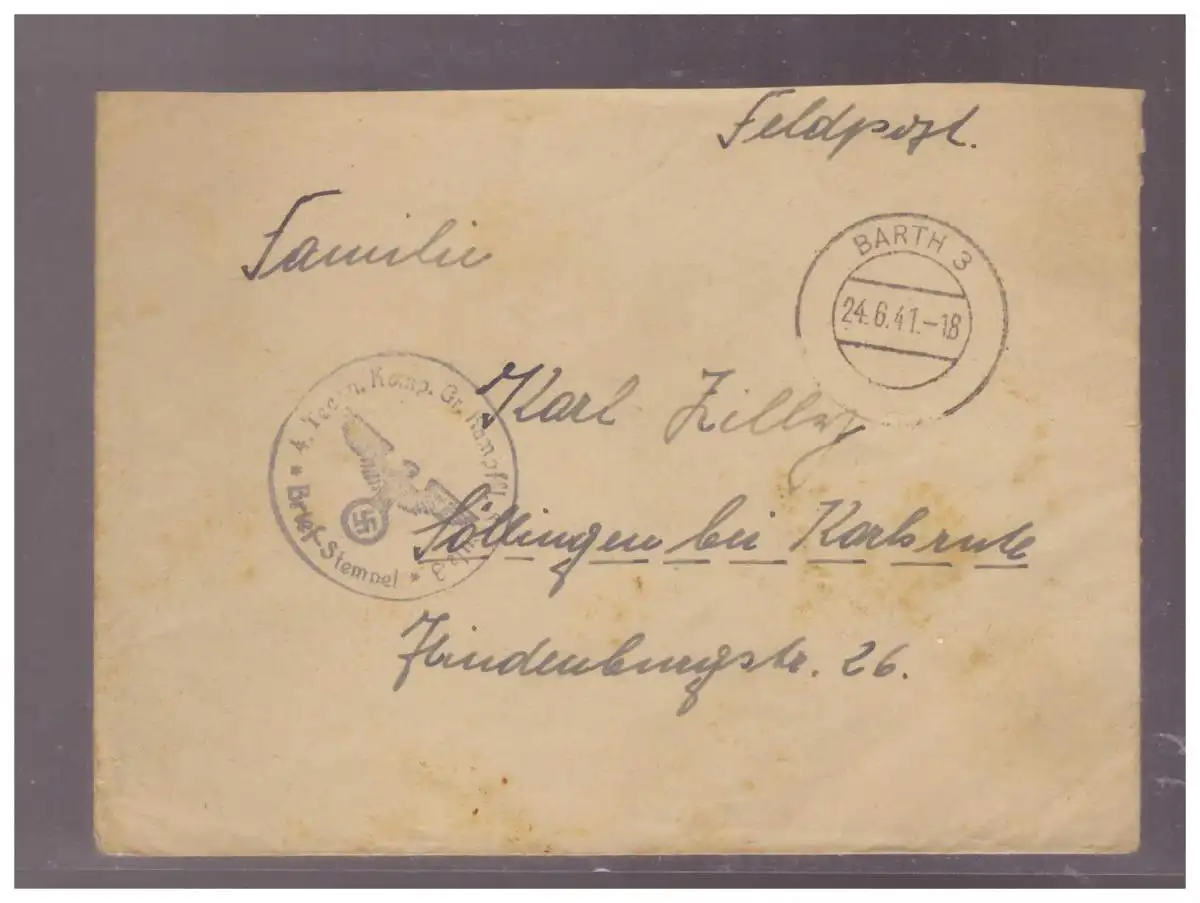 Feldpost.
BARTH 3
24.6.41.-18
Familie
Karl
Söllingen bei Karlsruhe
Hindenburgstr. 26.
4. Techn. Komp. Gr. Kampffl.
* Brief-Stempel *